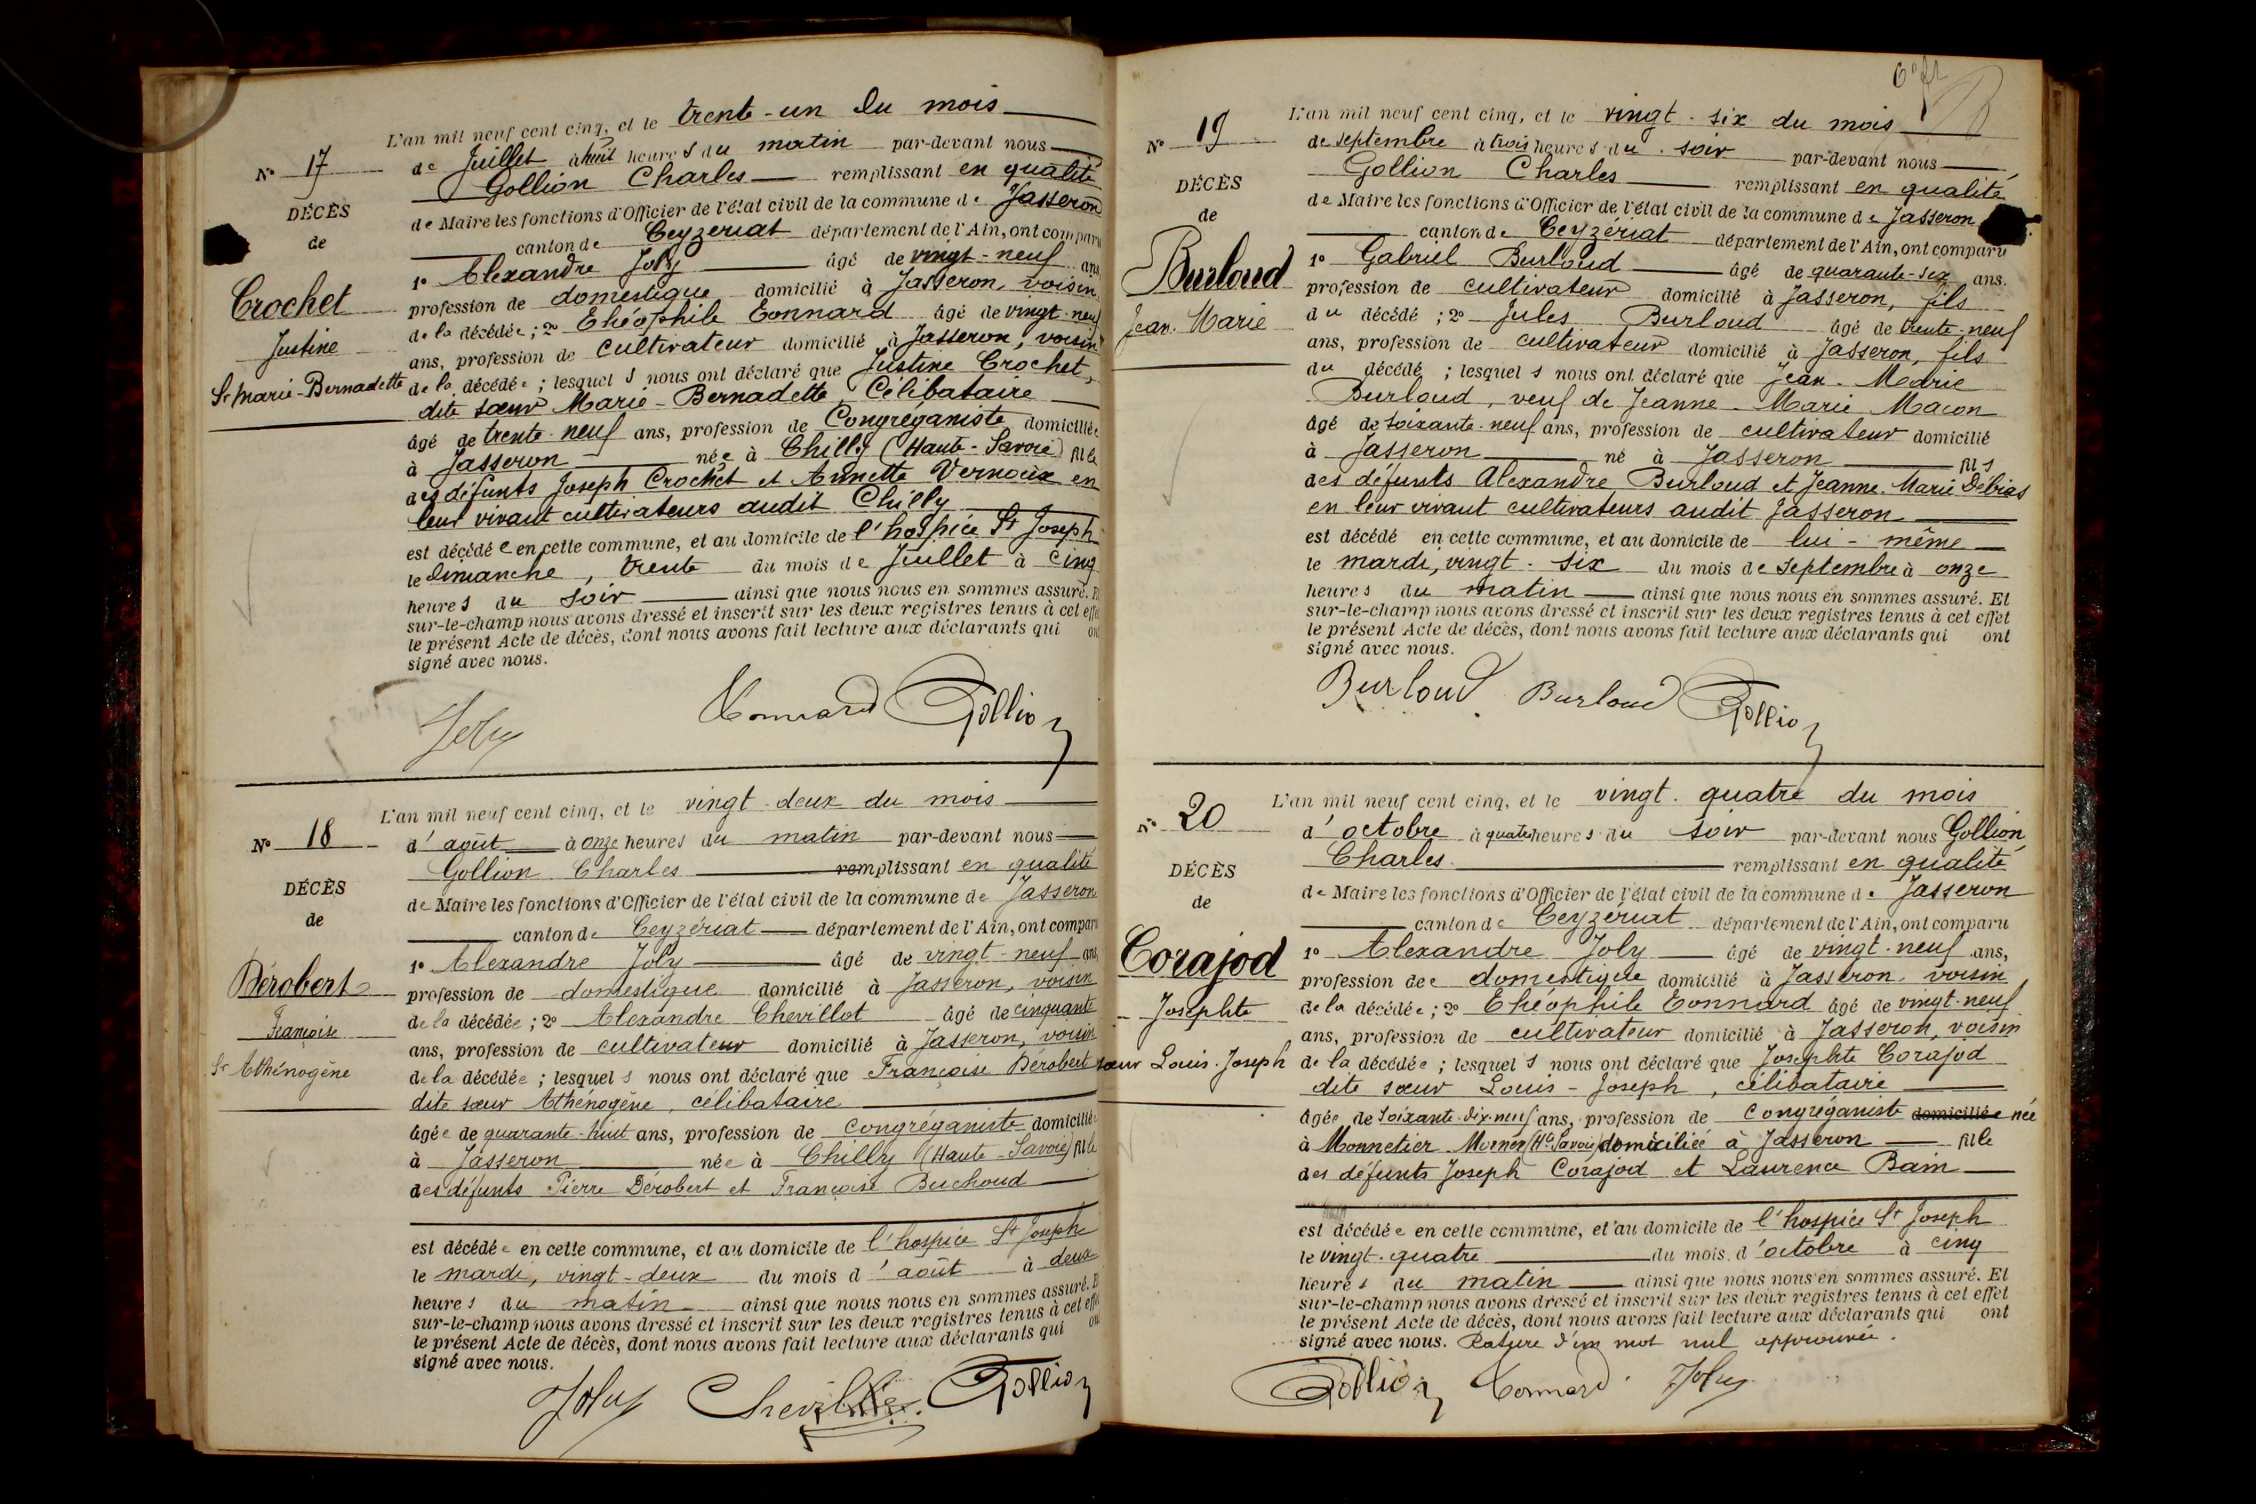 L'an mil neuf cent cinq, et le trente-un du mois
N° 17
de Juillet à huit heures du matin par-devant nous
Gollion Charles remplissant en qualité
DÉCÈS
de Maire les fonctions d'Officier de l'état civil de la commune de Jasseron
de
canton de Ceyzériat département de l'Ain, ont comparu
1° Alexandre Joly âgé de vingt-neuf ans
Crochet
profession de domestique domicilié à Jasseron, voisin
Justine
de la décédée ; 2° Théophile Tonnard âgé de vingt-neuf
ans, profession de cultivateur domicilié à Jasseron, voisin
Sr Marie-Bernadette
de la décédée ; lesquels nous ont déclaré que Justine Crochet,
dite sœur Marie-Bernadette, Célibataire
âgé de trente-neuf ans, profession de Congréganiste domiciliée
à Jasseron née à Chilly (Haute-Savoie) fille
des défunts Joseph Crochet et Annette Vernoux en
leur vivant cultivateurs audit Chilly
est décédée en cette commune, et au domicile de l'hospice St Joseph
le dimanche, trente du mois de Juillet à cinq
heures du soir ainsi que nous nous en sommes assuré. Et
sur-le-champ nous avons dressé et inscrit sur les deux registres tenus à cet effet
le présent Acte de décès, dont nous avons fait lecture aux déclarants qui ont
signé avec nous.
Joly Tonnard Gollion
L'an mil neuf cent cinq, et le vingt-deux du mois
N° 18
d'août à onze heures du matin par-devant nous
Gollion Charles remplissant en qualité
DÉCÈS
de Maire les fonctions d'Officier de l'état civil de la commune de Jasseron
de
canton de Ceyzériat département de l'Ain, ont comparu
1° Alexandre Joly âgé de vingt-neuf ans,
Dérobert
profession de domestique domicilié à Jasseron, voisin
Françoise
de la décédée ; 2° Alexandre Chevillot âgé de cinquante
ans, profession de cultivateur domicilié à Jasseron, voisin
Sr Athénogène
de la décédée ; lesquels nous ont déclaré que Françoise Dérobert
dite sœur Athénogène, célibataire
âgée de quarante-huit ans, profession de congréganiste domiciliée
à Jasseron née à Chilly (Haute-Savoie) fille
des défunts Pierre Dérobert et Françoise Buchoud
est décédée en cette commune, et au domicile de l'hospice St Joseph
le mardi, vingt-deux du mois d'août à deux
heures du matin ainsi que nous nous en sommes assuré. Et
sur-le-champ nous avons dressé et inscrit sur les deux registres tenus à cet effet
le présent Acte de décès, dont nous avons fait lecture aux déclarants qui ont
signé avec nous.
Joly Gollion
L'an mil neuf cent cinq, et le vingt-six du mois
N° 19
de septembre à trois heures du soir par-devant nous
Gollion Charles remplissant en qualité
DÉCÈS
de Maire les fonctions d'Officier de l'état civil de la commune de Jasseron
de
canton de Ceyzériat département de l'Ain, ont comparu
Burloud
1° Gabriel Burloud âgé de quarante-six ans.
profession de cultivateur domicilié à Jasseron, fils
Jean-Marie
du décédé ; 2° Jules Burloud âgé de trente-neuf
ans, profession de cultivateur domicilié à Jasseron, fils
du décédé ; lesquels nous ont déclaré que Jean-Marie
Burloud, veuf de Jeanne-Marie Macon
âgé de soixante-neuf ans, profession de cultivateur domicilié
à Jasseron né à Jasseron fils
des défunts Alexandre Burloud et Jeanne-Marie Debias
en leur vivant cultivateurs audit Jasseron
est décédé en cette commune, et au domicile de lui-même
le mardi, vingt-six du mois de septembre à onze
heures du matin ainsi que nous nous en sommes assuré. Et
sur-le-champ nous avons dressé et inscrit sur les deux registres tenus à cet effet
le présent Acte de décès, dont nous avons fait lecture aux déclarants qui ont
signé avec nous.
Burloud Burloud Gollion
L'an mil neuf cent cinq, et le vingt-quatre du mois
N° 20
d'octobre à quatre heures du soir par-devant nous Gollion,
Charles remplissant en qualité
DÉCÈS
de Maire les fonctions d'Officier de l'état civil de la commune de Jasseron
de
canton de Ceyzériat département de l'Ain, ont comparu
Corajod
1° Alexandre Joly âgé de vingt-neuf ans,
profession de domestique domicilié à Jasseron, voisin
Josephte
de la décédée ; 2° Théophile Tonnard âgé de vingt-neuf
ans, profession de cultivateur domicilié à Jasseron, voisin
sœur Louis-Joseph
de la décédée ; lesquels nous ont déclaré que Josephte Corajod
dite sœur Louis-Joseph, célibataire
âgée de soixante-dix-neuf ans, profession de congréganiste domiciliée née
à Monnetier Mornex (Hte Savoie) domiciliée à Jasseron fille
des défunts Joseph Corajod et Laurence Bain
est décédée en cette commune, et au domicile de l'hospice St Joseph
le vingt-quatre du mois d'octobre à cinq
heures du matin ainsi que nous nous en sommes assuré. Et
sur-le-champ nous avons dressé et inscrit sur les deux registres tenus à cet effet
le présent Acte de décès, dont nous avons fait lecture aux déclarants qui ont
signé avec nous. Rature d'un mot nul approuvée.
Gollion Tonnard Joly